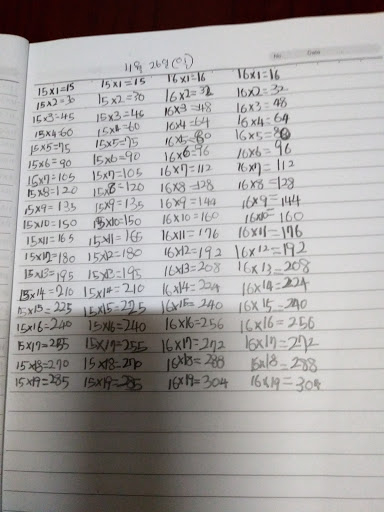 11월 26일(일)
No. Date
15x1=15 15x1=15 16x1=16 16x1=16
15x2=30 15x2=30 16x2=32 16x2=32
15x3=45 15x3=45 16x3=48 16x3=48
15x4=60 15x4=60 16x4=64 16x4=64
15x5=75 15x5=75 16x5=80 16x5=80
15x6=90 15x6=90 16x6=96 16x6=96
15x7=105 15x7=105 16x7=112 16x7=112
15x8=120 15x8=120 16x8=128 16x8=128
15x9=135 15x9=135 16x9=144 16x9=144
15x10=150 15x10=150 16x10=160 16x10=160
15x11=165 15x11=165 16x11=176 16x11=176
15x12=180 15x12=180 16x12=192 16x12=192
15x13=195 15x13=195 16x13=208 16x13=208
15x14=210 15x14=210 16x14=224 16x14=224
15x15=225 15x15=225 16x15=240 16x15=240
15x16=240 15x16=240 16x16=256 16x16=256
15x17=255 15x17=255 16x17=272 16x17=272
15x18=270 15x18=270 16x18=288 16x18=288
15x19=285 15x19=285 16x19=304 16x19=304